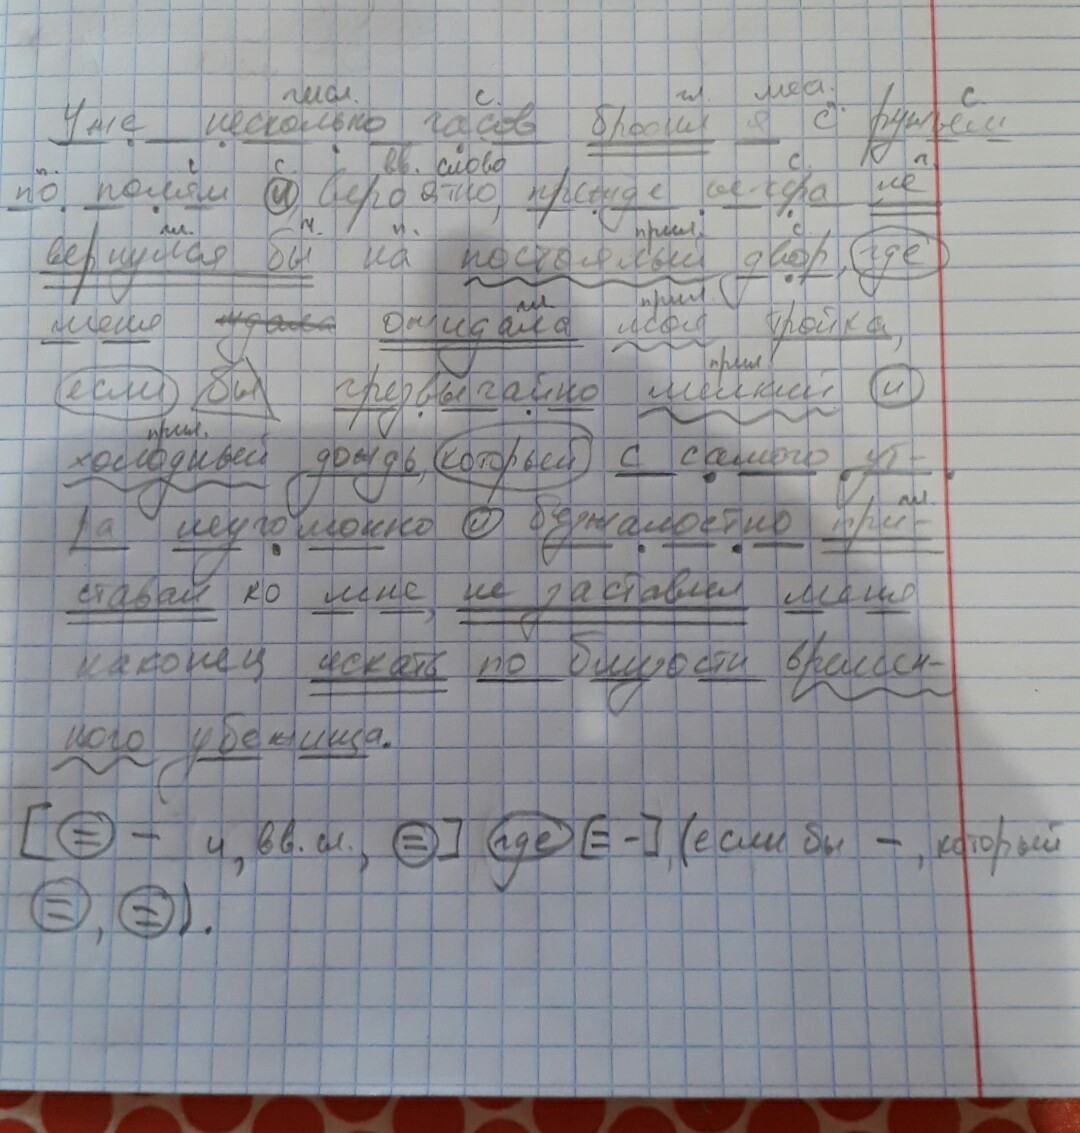 числ. с. гл. мес. с.
Уже несколько часов бродил я с ружьем
п. с с. вв. слово с. ч.
по полям и, вероятно, прежде вечера не
гл. ч. п. прил. с.
вернулся бы на постоялый двор, где
гл. прил.
меня ждала ожидала моя тройка,
прил
если бы чрезвычайно мелкий и
прил.
холодный дождь, который с самого ут-
гл.
ра неугомонно и безжалостно при-
ставал ко мне, не заставил меня
наконец искать по близости времен-
ного убежища.
[ = - и, вв. сл., = ] где [ = - ], (если бы -, который
=, = ).